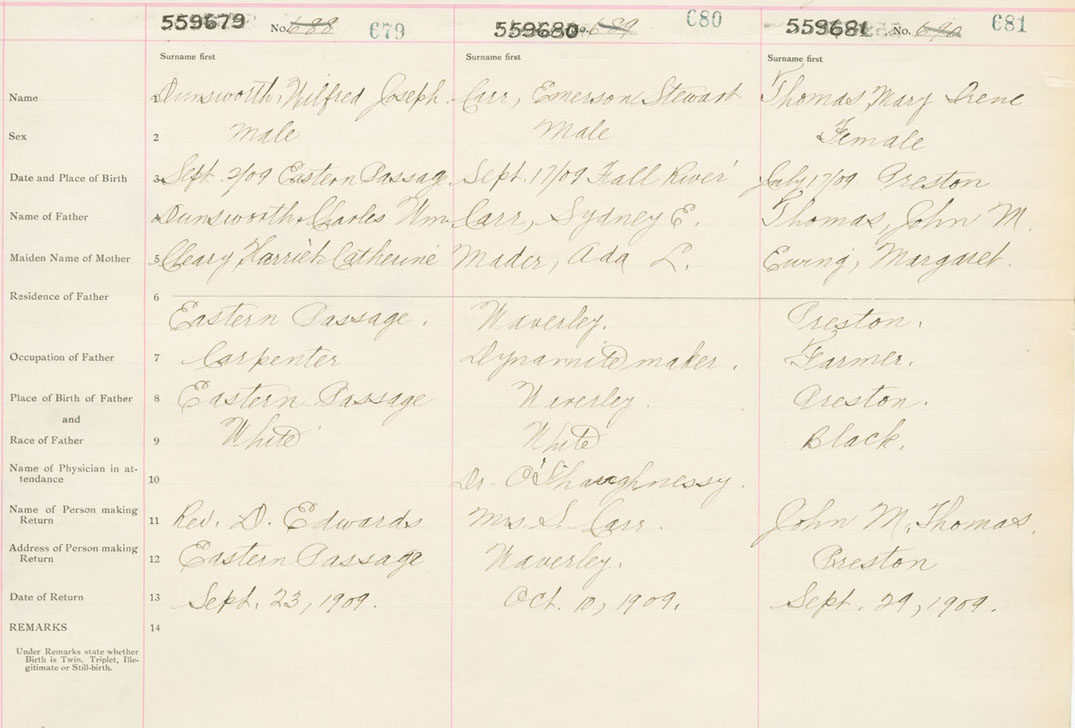 559679 No. 688 679 559680 No. 689 680 559681 No. 690 681
Surname first Surname first Surname first
Name 1 Dunsworth, Wilfred Joseph. Carr, Emerson Stewart Thomas, Mary Irene
Sex 2 Male Male Female
Date and Place of Birth 3 Sept. 2/09 Eastern Passage. Sept. 17/09 Fall River July 17/09 Preston
Name of Father 4 Dunsworth, Charles Wm. Carr, Sydney E. Thomas, John M.
Maiden Name of Mother 5 Cleary Harriet Catherine Mader, Ada L. Ewing, Margaret.
Residence of Father 6
Eastern Passage. Waverley. Preston.
Occupation of Father 7 Carpenter Dynamite maker. Farmer.
Place of Birth of Father 8 Eastern Passage Waverley. Preston.
and
Race of Father 9 White White Black.
Name of Physician in at-
tendance 10 Dr. O'Shaughnessy.
Name of Person making
Return 11 Rev. D. Edwards Mrs S. Carr. John M. Thomas.
Address of Person making
Return 12 Eastern Passage Waverley. Preston
Date of Return 13 Sept. 23, 1909. Oct. 10, 1909. Sept. 29, 1909.
REMARKS 14
Under Remarks state whether
Birth is Twin, Triplet, Ille-
gitimate or Still-birth.